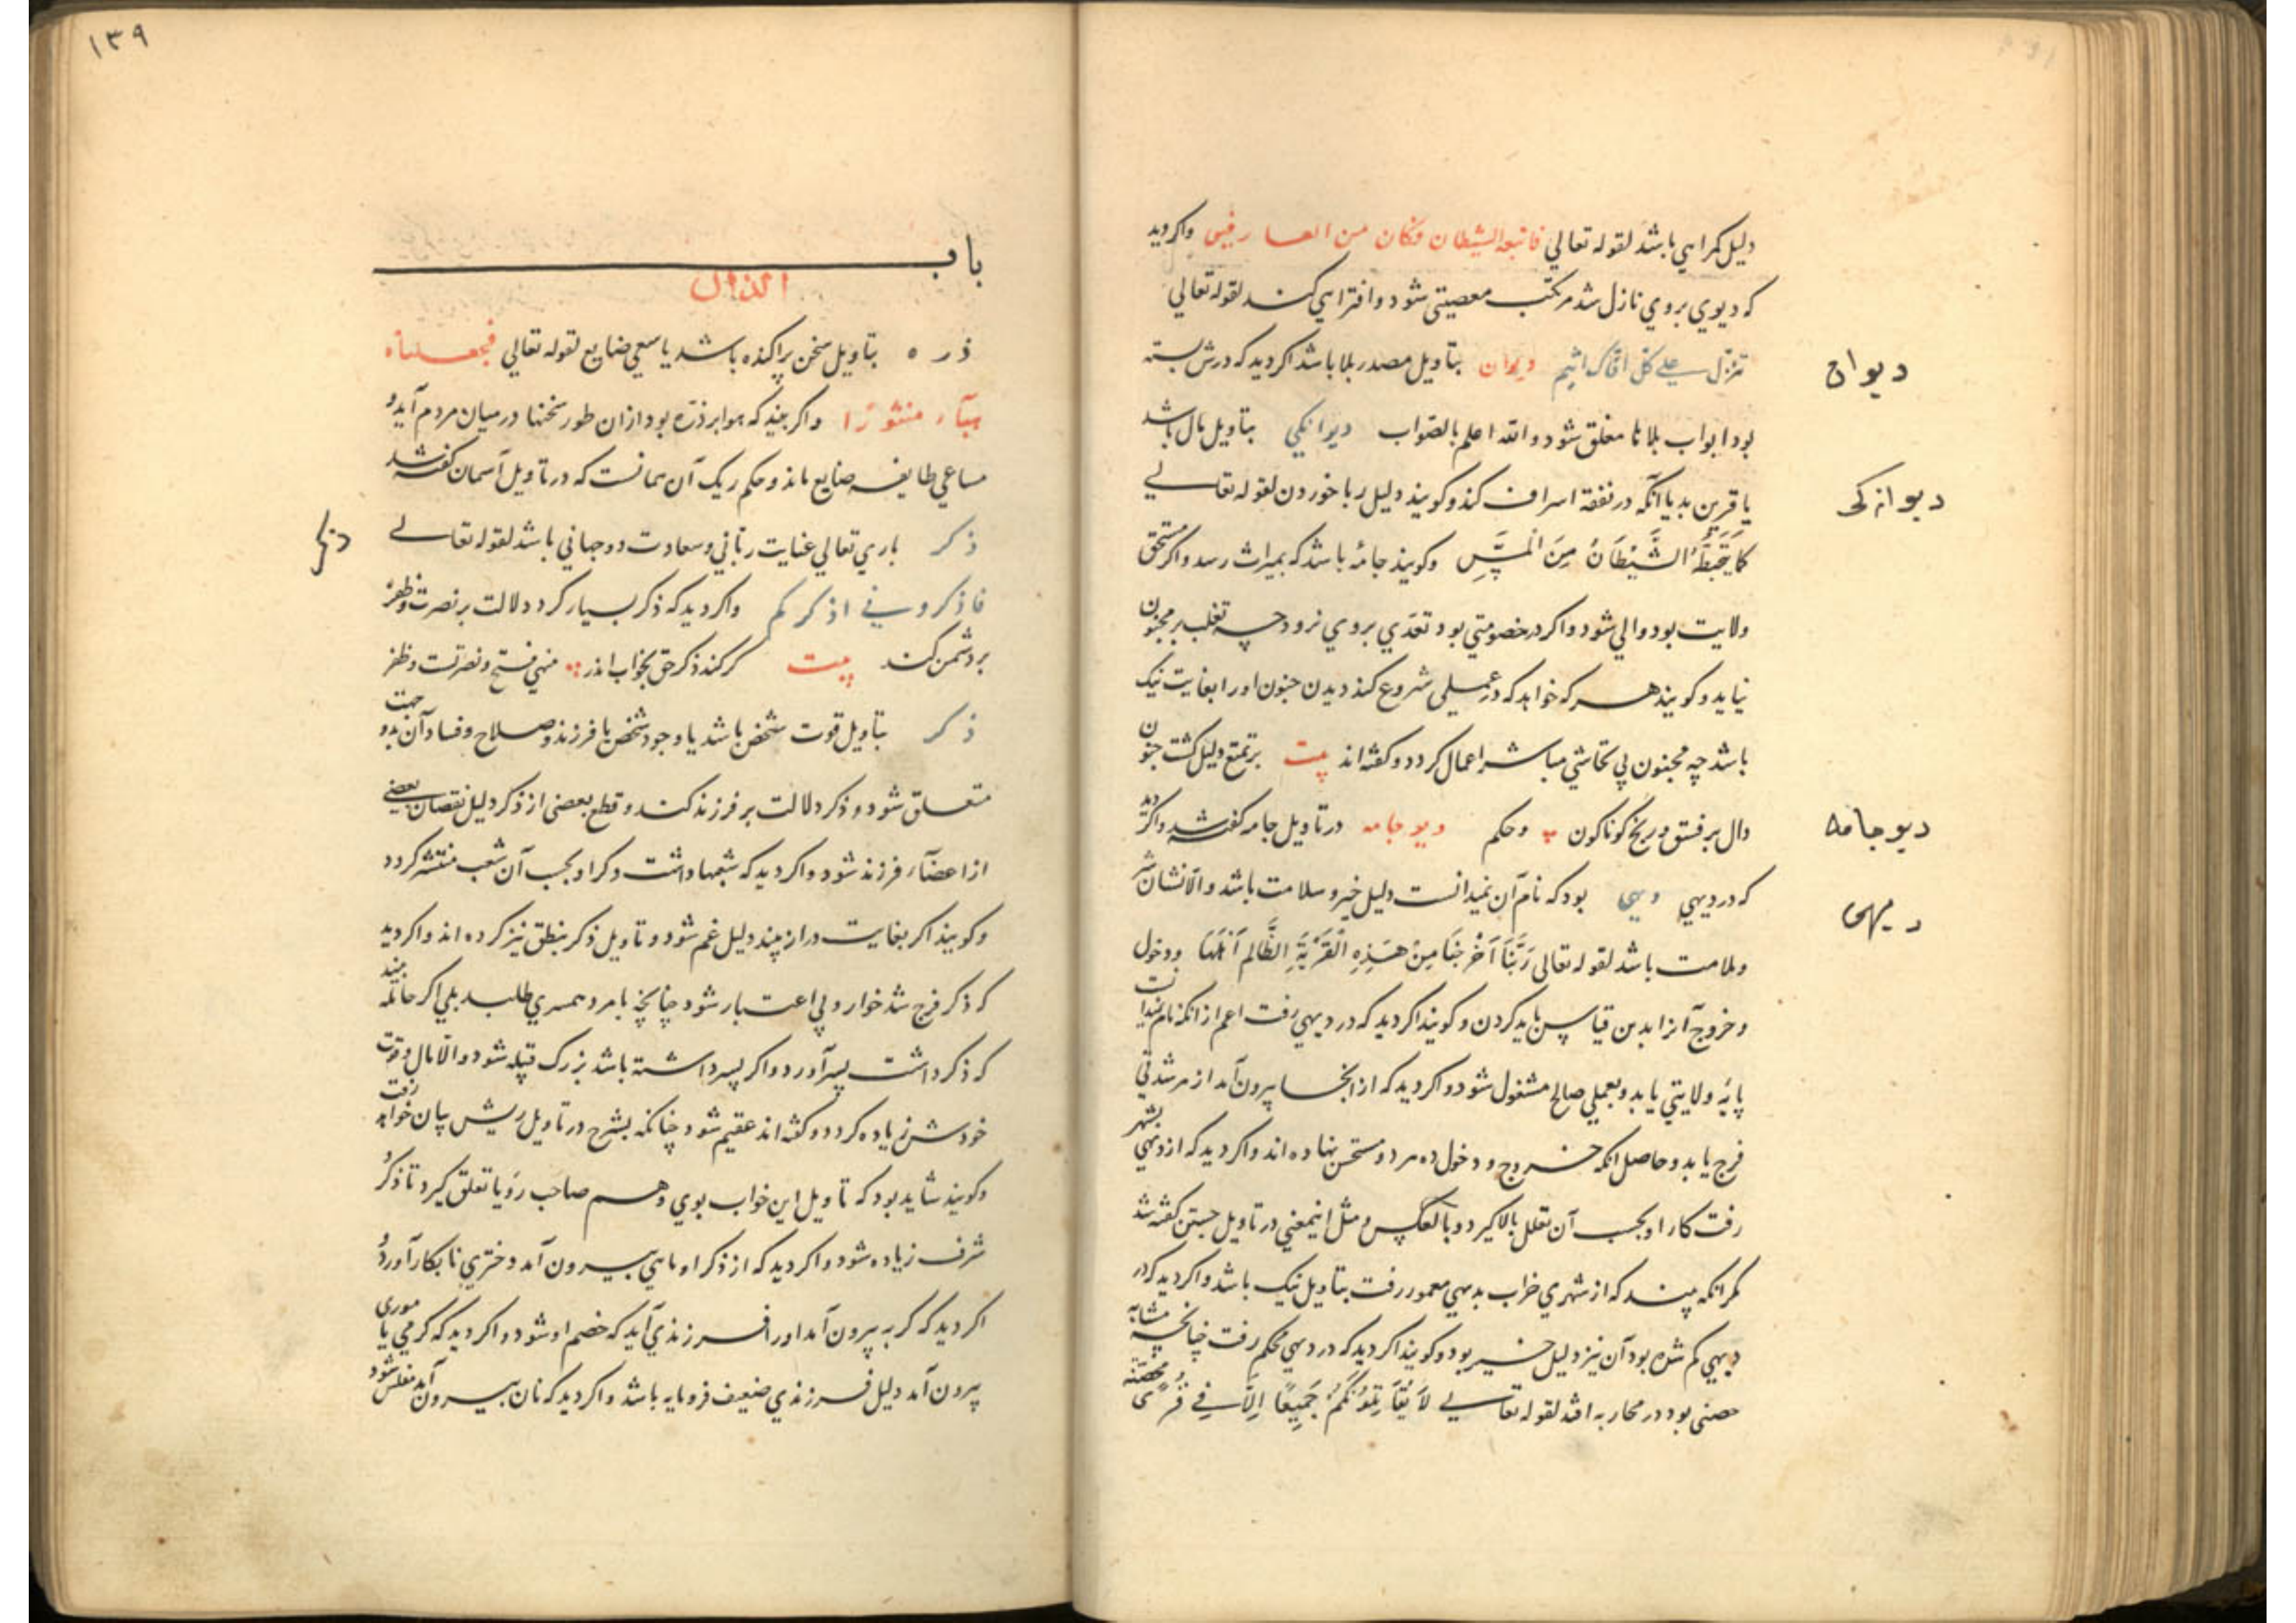 دلیل کمراهی باشد لقوله تعالی فاتبعه الشیطان فکان من الغاوین واکر دید
که دیوی بروی نازل شد مرتکب معصیتی شود وافترایی کند لقوله تعالی
تنزل علی کل افاک اثیم دیوان بتاویل مصدر بلا باشد اکر دید که درش بسته
دیوان
بود ابواب بلاها مغلق شود والله اعلم بالصواب دیوانکی بتاویل مال باشد
یا قرین بد یا آنکه در نفقه اسراف کند وکویند دلیل ربا خوردن لقوله تعالی
دیوانه کی
کما یتخبطه الشیطان من المس وکویند جامه باشد که بمیراث رسد واکر مستحق
ولایت بود والی شود واکر در خصومتی بود تعدی بروی نرود چه تغلب بر مجنون
نیاید وکویند هر که خواهد که در عملی شروع کند دیدن جنون اورا بغایت نیک
باشد چه مجنون بی تحاشی مباشر اعمال کردد وکفته اند بیت بر تمتع دلیل کشت جنون
دال بر فسق و رنج کوناکون وحکم دیو جامه در تاویل جامه کفته شد واکر دید
دیو جامه
که در دیهی دیهی بود که نام آن نمیدانست دلیل خیر وسلامت باشد والا نشان شر
دیهی
وملامت باشد لقوله تعالی ربنا اخرجنا من هذه القریة الظالم اهلها ودخول
وخروج آنرا بدین قیاس باید کردن وکویند اکر دید که در دیهی رفت اعم از انکه نام نمیدانست
پایه ولایتی یابد وبعملی صالح مشغول شود واکر دید که از انجا بیرون آمد از هر شدتی
فرج یابد وحاصل انکه خروج ودخول ده هر دو مستحسن نهاده اند واکر دید که از دیهی بشهر
رفت کار او بحسب آن تعلل بالا کیرد وبالعکس ومثل اینمعنی در تاویل جستن کفته شد
مکر انکه بیند که از شهری خراب بدیهی معمور رفت بتاویل نیک باشد واکر دید که در
دیهی کم شده بود آن نیز دلیل خیر بود وکویند اکر دید که در دیهی محکم رفت چنانچه مشابه
حصنی بود در محاربه افتد لقوله تعالی لا یقاتلونکم جمیعا الا فی قری محصنة
١٣٩
باب
الذال
ذره بتاویل سخن پراکنده باشد یا سعی ضایع لقوله تعالی فجعلناه
هباء منثورا واکر بیند که هوا پر ذره بود از ان طور سخنها در میان مردم آید و
مساعی طایفه ضایع ماند وحکم ریک آن همانست که در تاویل آسمان کفته شد
ذکر باری تعالی عنایت ربانی وسعادت دوجهانی باشد لقوله تعالی
ذکر
فاذکرونی اذکرکم واکر دید که ذکر بسیار کرد دلالت بر نصرت وظفر
بر دشمن کند بیت کر کند ذکر حق بخواب اندر منهی فتح ونصرتست وظفر
ذکر بتاویل قوت شخص باشد یا وجود شخص با فرزند وصلاح وفساد آن بدو جهت
متعلق شود وذکر دلالت بر فرزند کند وقطع بعضی از ذکر دلیل نقصان بعضی
از اعضاء فرزند شود واکر دید که شعبها داشت ذکر او بحسب آن شعب منتشر کردد
وکویند اکر بغایت دراز بیند دلیل غم شود وتاویل ذکر بنطق نیز کرده اند واکر دید
که ذکر فرج شد خوار وبی اعتبار شود چنانچه با مرد همسری طلبد بلی اکر حامله بیند
که ذکر داشت پسر آورد واکر پسر داشته باشد بزرک قبیله شود والا مال وقوت
خودش زیاده کردد وکفته اند عقیم شود چنانکه بشرح در تاویل ریش بیان خواهد رفت
وکویند شاید بود که تاویل این خواب بوی وهم صاحب رؤیا تعلق کیرد تا ذکر و
شرف زیاده شود واکر دید که از ذکر او ماهی بیرون آمد دختری نابکار آورد و
اکر دید که کربه بیرون آمد اورا فرزندی آید که خصم او شود واکر دید که کرمی یا موری
بیرون آمد دلیل فرزندی ضعیف فرومایه باشد واکر دید که نان بیرون آید مفلس شود